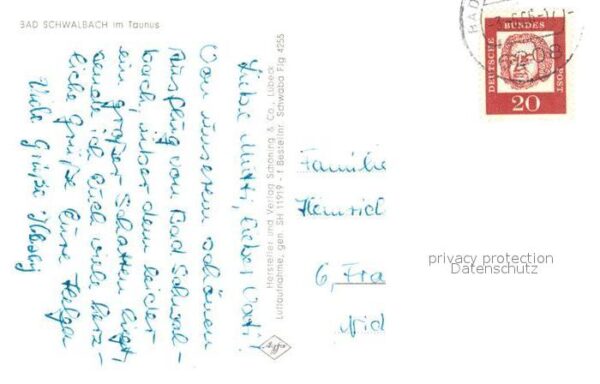 BAD SCHWALBACH im Taunus
Liebe Mutti, lieber Vati!
Von unserem schönen
Ausflug von Bad Schwal-
bach, über dem leider
ein großer Schatten liegt,
sende ich Euch viele herz-
liche Grüße Eure Helga
Viele Grüße
Hersteller und Verlag Schöning & Co., Lübeck
Luftaufnahme, gen. SH 11919 - f Bestellnr. Schwaba Flg 4255
Agfa
Familie
Heinrich
6, Fra
Nid
DEUTSCHE BUNDESPOST
20
BAD
privacy protection
Datenschutz